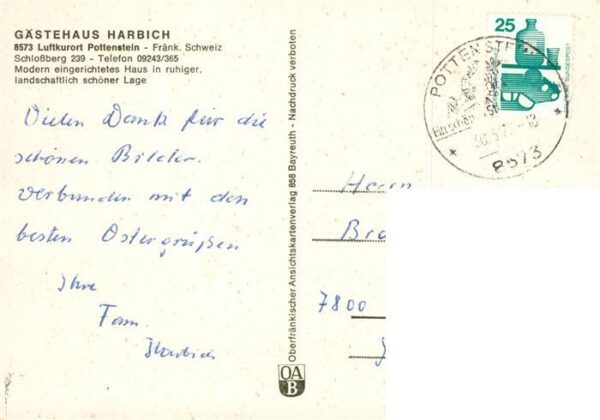 GÄSTEHAUS HARBICH
8573 Luftkurort Pottenstein - Fränk. Schweiz
Schloßberg 239 - Telefon 09243/365
Modern eingerichtetes Haus in ruhiger,
landschaftlich schöner Lage
Vielen Dank für die
schönen Bilder.
verbunden mit den
besten Ostergrüßen
Ihre
Fam.
Harbich
Oberfränkischer Ansichtskartenverlag 858 Bayreuth - Nachdruck verboten
OA
B
25
BUNDESPOST
POTTENSTE
8573
Herrn
7800